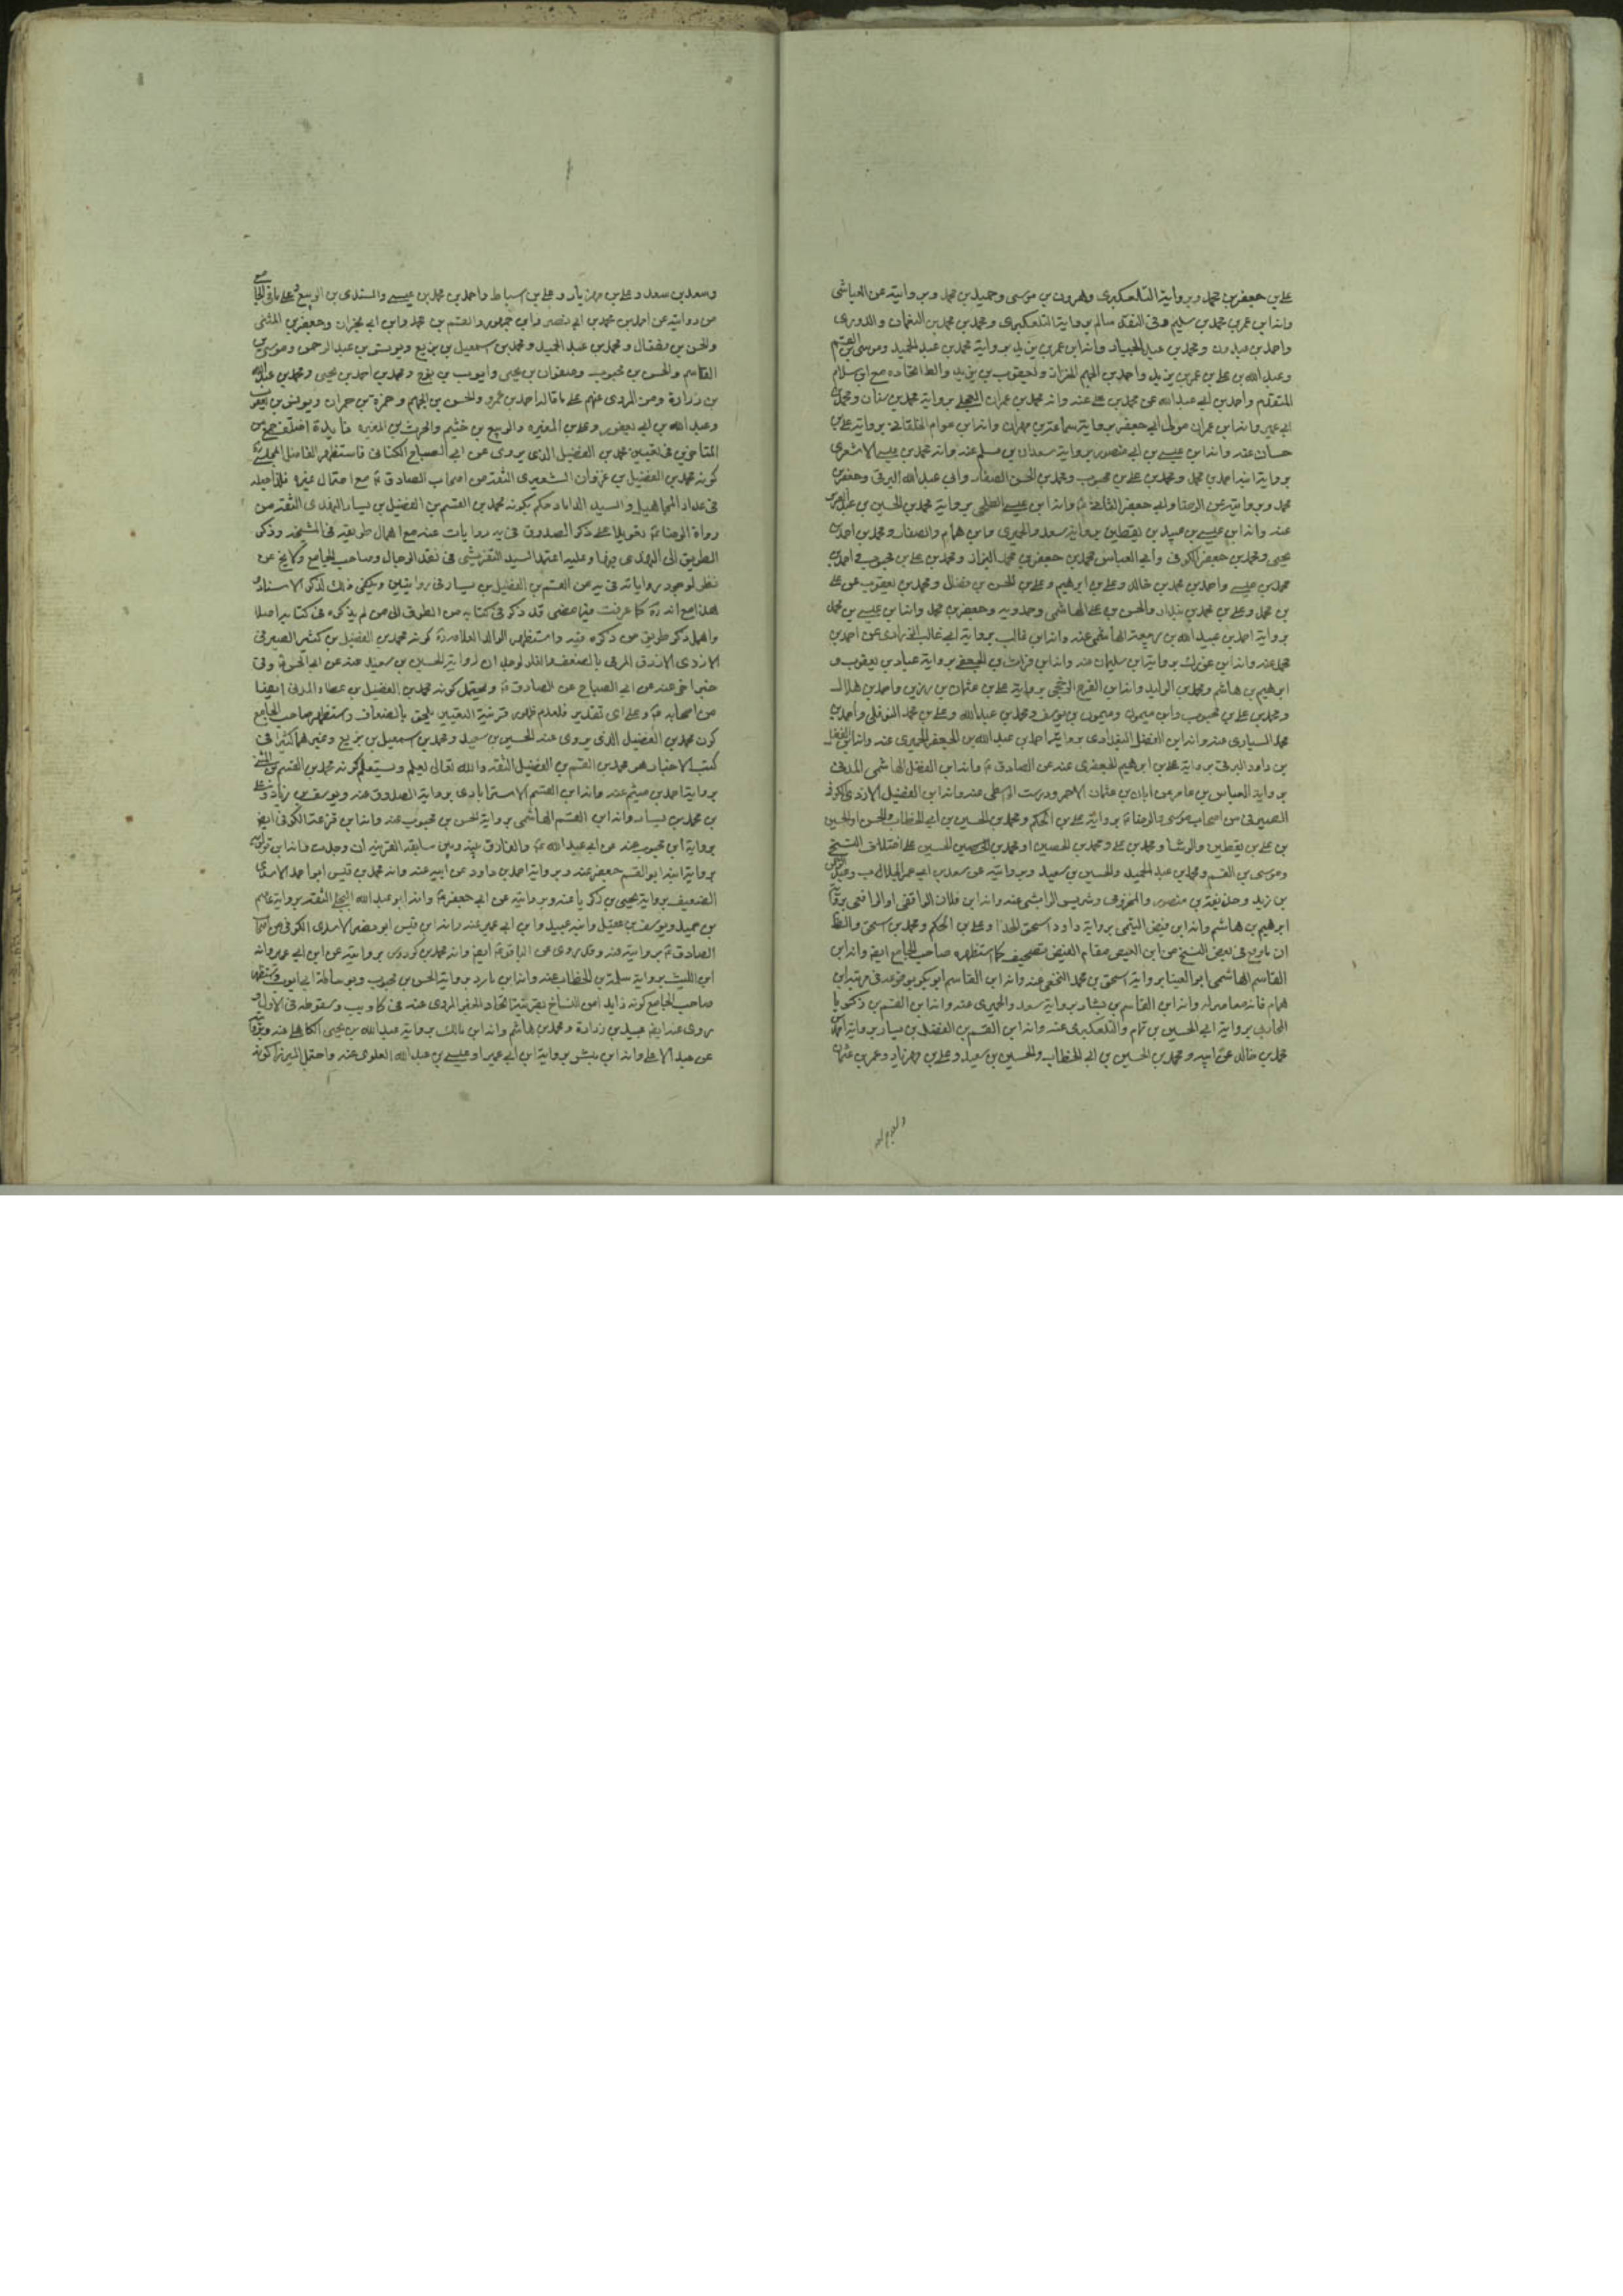 علي بن جعفر بن محمد وبرواية التلعكبرى وهرون بن موسى وحميد بن محمد وبروايته عن العياشى
وانه ابن عمر بن محمد بن سليم وفى النقد سالم برواية التلعكبرى ومحمد بن محمد بن النعمان والدورى
واحمد بن عبدون ومحمد بن عبد الجبار وانه ابن عمر بن يزيد برواية محمد بن عبد الحميد وموسى بن القسم
وعبد الله بن على بن عمر بن يزيد واحمد بن الجهم الخزاز ويعقوب بن يزيد والظ اتحاده مع ابن سلام
المتقدم واحمد بن ابى عبد الله عن محمد بن على عنه وانه محمد بن عمران العجلى برواية محمد بن سنان ومحمد بن
ابى عمير وانه ابن عمران مولى ابى جعفر برواية سماعة بن مهران وانه ابن عوام الخلقانى برواية على بن
حسان عنه وانه ابن عيسى بن ابى منصور برواية سعدان بن مسلم عنه وانه محمد بن عيسى الاشعرى
برواية ابنه احمد بن محمد ومحمد بن على بن محبوب ومحمد بن الحسن الصفار وابى عبد الله البرقى وجعفر بن
محمد وبروايته عن الرضا وابى جعفر الثانى وانه ابن عيسى الطلحى برواية محمد بن الحسين بن عبد العزيز
عنه وانه ابن عيسى بن عبيد بن يقطين برواية سعد والحميرى وابن همام والصفار ومحمد بن احمد بن
يحيى ومحمد بن جعفر الكوفى وابى العباس ومحمد بن جعفر بن محمد البزاز ومحمد بن على بن محبوب واحمد بن
محمد بن عيسى واحمد بن محمد بن خالد وعلى بن ابرهيم وعلى بن الحسن بن فضال ومحمد بن يعقوب عن على
بن محمد وعلى بن محمد بن بندار والحسن بن على الهاشمى وحمدويه وجعفر بن محمد وانه ابن عيسى بن محمد
برواية احمد بن عبيد الله بن ربيعة الهاشمى عنه وانه ابن غالب برواية ابى غالب الزرارى عن احمد بن
محمد عنه وانه ابن برواية ابن سليمان عنه وانه ابن فرات الجعفى برواية عباد بن يعقوب و
ابرهيم بن هاشم ومحمد بن الوليد وانه ابن الفرج الرخجى برواية على بن عثمان بن رزين واحمد بن هلال
ومحمد بن على بن محبوب وابن ميمون وميمون بن يوسف ومحمد بن عبد الله وعلى بن محمد النوفلى واحمد بن
محمد السيارى عنه وانه ابن الفضل البغدادى برواية احمد بن عبد الله بن الجعفر الحميرى عنه وانه ابن الفضل
بن داود البرقى برواية على بن ابرهيم الجعفرى عنه عن الصادق ع وانه ابن الفضل الهاشمى المدنى
برواية العباس بن عامر عن ابان بن عثمان الاحمر ودرست الواسطى عنه وانه ابن الفضيل الازدى الكوفى
الصيرفى من اصحاب موسى والرضا ع برواية على بن الحكم ومحمد بن الحسين بن ابى الخطاب والحسن او الحسين
بن على بن يقطين والوشا ومحمد بن على ومحمد بن الحصين او محمد بن الحصين الحسين على اختلاف النسخ
وموسى بن القسم ومحمد بن عبد الحميد والحسين بن سعيد وبروايته عن سعد بن ابى عمر الجلاب
بن زيد وحذيفة بن منصور والمخزومى وشريس الوابشى عنه وانه ابن فلان الواقفى او الرافعى برواية
ابرهيم بن هاشم وانه ابن فيض التيمى برواية داود اسحق الحذاء وعلى بن الحكم ومحمد بن اسحق والظ
ان ما وقع فى بعض النسخ من ابن العيص مقام الفيض تصحيف كما استظهره صاحب الجامع ايض وانه ابن
القاسم الهاشمى ابو العينا برواية اسحق بن محمد النخعى عنه وانه ابن القاسم ابو بكر بوقوعه فى مرتبة ابن
همام فانه معاصر له وانه ابن القاسم بن بشار برواية سعد والحميرى عنه وانه ابن القسم بن زكريا
المحاربى برواية ابى الحسين بن تمام والتلعكبرى عنه وانه ابن القسم بن الفضيل بن يسار برواية احمد بن
محمد بن خالد عن ابيه ومحمد بن الحسين بن ابى الخطاب والحسين بن سعيد وعلى بن مهزيار وعمر بن عثمان
وسعد بن سعد
وسعد بن سعد وعلى بن مهزيار وعلى بن اسباط واحمد بن محمد بن عيسى والسندى بن الربيع على ما فى الجامع
من روايته عن احمد بن محمد بن ابى نصر وابن جمهور والقسم بن محمد وابن ابى نجران وجعفر بن المثنى
والحسن بن فضال ومحمد بن عبد الحميد ومحمد بن اسمعيل بن بزيع ويونس بن عبد الرحمن وموسى بن
القاسم والحسن بن محبوب وصفوان بن يحيى وايوب بن نوح ومحمد بن احمد بن يحيى ومحمد بن عبد الله
بن زرارة ومن المروى عنهم على ما قاله احمد بن عمرو والحسن بن الجهم وحمزة بن حمران ويونس بن يعقوب
وعبد الله بن ابى يعفور وعلى بن المغيره والربيع بن خثيم والحرث بن المغيره فايدة اختلف جمع من
المتاخرين فى تعيين محمد بن الفضيل الذى يروى عن ابى الصباح الكنانى فاستظهر الفاضل المجلسى
كونه محمد بن الفضيل بن غزوان الشعيرى الثقة من اصحاب الصادق ع مع احتمال غيره فلذا جعله
فى عداد المجاهيل والسيد الداماد حكم بكونه محمد بن القسم بن الفضيل بن يسار النهدى الثقة من
رواة الرضا ع تعويلا على ذكر الصدوق فى يه روايات عنه مع اهمال طريقه فى المشيخه وذكر
الطريق الى النهدى فيها وعليه اعتمد السيد التفريشى فى نقد الرجال وصاحب الجامع ولا يخ عن
نظر لوجود رواياته فى يه عن القسم بن الفضيل بن يسار فى روايتين ويكفى ذلك لذكر الاسناد
هذا مع انه ره كما عرفت فيما مضى قد ذكر فى كتابه من الطرق الى من لم يذكره فى كتابه اصلا
واهمل ذكر طريق من ذكره فيه واستظهر الوالد العلامة كونه محمد بن الفضيل بن كثير الصيرفى
الازدى الازرق المرمى بالضعف والغلو لوجدان لرواية الحسين بن سعيد عنه عن ابى الحسن ع وفى
خبر اخر عنه عن ابى الصباح عن الصادق ع ويحتمل كونه محمد بن الفضيل بن عطاء المدنى ايضا
من اصحابه ع وعلى اى تقدير فلعدم ظهور قرينة التعيين يلحق بالضعاف واستظهر صاحب الجامع
كون محمد بن الفضيل الذى يروى عنه الحسين بن سعيد ومحمد بن اسمعيل بن بزيع وغيرهما كثيرا فى
كتب الاخبار هو محمد بن القسم بن الفضيل الثقه والله تعالى يعلم ويستعلم كونه محمد بن القسم بن المثنى
برواية احمد بن ميثم عنه وانه ابن القسم الاسترابادى برواية الصدوق عنه ويوسف بن زياد وعلى
بن محمد بن يسار وانه ابن القسم الهاشمى برواية الحسن بن محبوب عنه وانه ابن قزعة الكوفى ايض
برواية ابن محبوب عنه عن ابى عبد الله ع والفارق بينه وبين سابقه القرينه ان وجدت وانه ابن قولويه
برواية ابنه ابو القسم جعفر عنه وبرواية احمد بن داود عن ابيه عنه وانه محمد بن قيس ابو احمد الاسدى
الضعيف برواية يحيى بن زكريا عنه وبروايته عن ابى جعفر ع وانه ابو عبد الله البجلى الثقة برواية عاصم
بن حميد ويوسف بن عقيل وابنه عبيد وابن ابى عمير عنه وانه ابن قيس ابو نصر الاسدى الكوفى من اصحاب
الصادق ع بروايته عنه وقد يروى عن الباقر ع ايض وانه محمد بن كردوس بروايته عن ابن ابى عمير وانه
ابن الليث برواية سلمة بن الخطاب عنه وانه ابن مارد برواية الحسن بن محبوب وبوساطة ابى ايوب واستظهر
صاحب الجامع كونه زايدا من النساخ بقرينة اتحاد الخبر المروى عنه فى كا و يب وسقوطه فى الاول و
يروى عنه ايض عبيد بن زرارة ومحمد بن هاشم وانه ابن مالك برواية عبد الله بن يحيى الكاهلى عنه وبروايته
عن عبد الاعلى وانه ابن مبشر برواية ابن ابى عمير وعيسى بن عبد الله العلوى عنه واحتمل الميرزا كونه